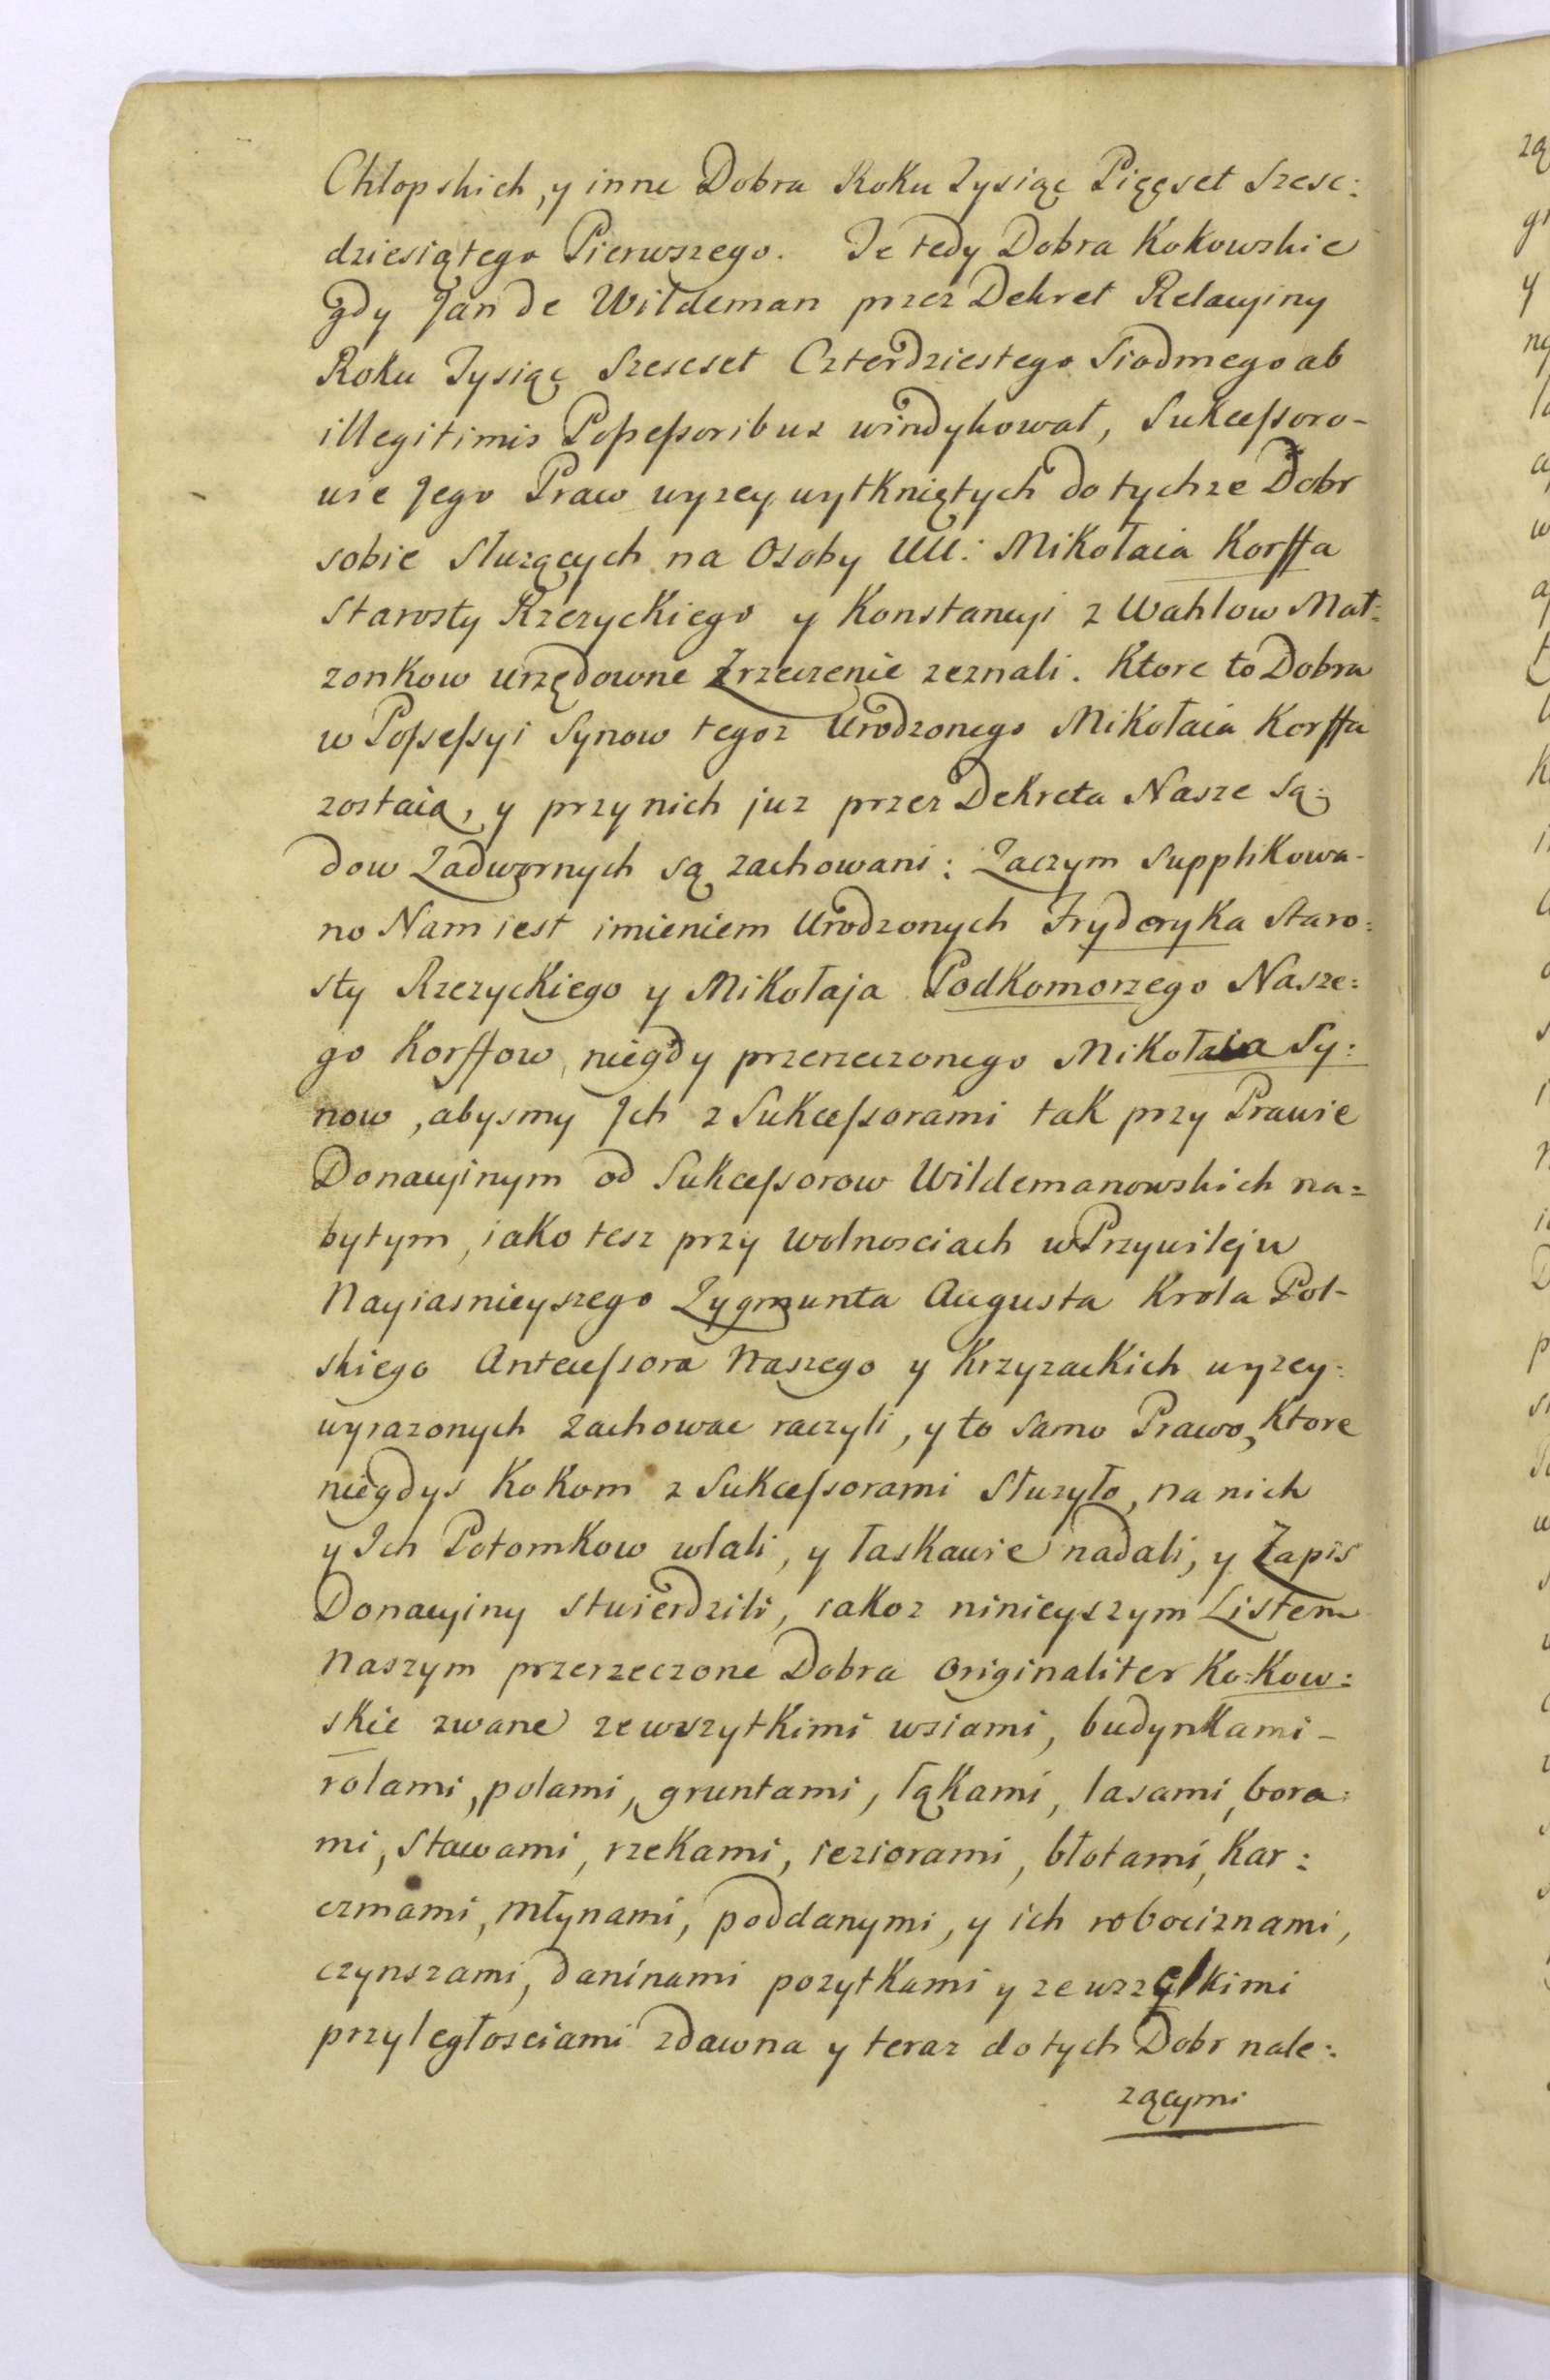 Chłopskich, y inne Dobra Roku Tysiąc Pięçset Szesc:
dziesiątego Pierwszego. Te tedy Dobra Kokowskie
gdy Jan de Wildeman przez Dekret Relacyiny
Roku Tysiąç Szescset Czterdziestego Siodmego ab
illegitimis Possessoribus windykował, Sukcessoro-
wie Jego Praw wyzey wytkniętych do tychze Dobr
sobie słuzących na Osoby UU: Mikołaia Korffa
Starosty Rzezyckiego y Konstancyi z Wahlow Mał:
zonkow urzędowne Zrzeczenie zeznali. Ktore to Dobra
w Possessyi Synow tegoz Urodzonego Mikołaia Korffa
zostaią, y przy nich juz przez Dekreta Nasze Są:
dow Zadwornych są zachowani: Zaczym supplikowa-
no Nam iest imieniem Urodzonych Fryderyka Staro:
sty Rzezyckiego y Mikołaja Podkomorzego Nasze:
go Korffow, niegdy przerzeczonego Mikołaia Sy:
now, abysmy Jch z Sukcessorami tak przy Prawie
Donacyinym od Sukcessorow Wildemanowskich na=
bytym, iako tesz przy wolnosciach w Przywileju
Nayiasnieyszego Zygmunta Augusta Krola Pol-
skiego Antecessora Naszego y Krzyzackich wyzey:
wyrazonych zachowac raczyli, y to samo Prawo, Ktore
niegdys Kokom z Sukcessorami słuzyło, na nich
y Ich Potomkow wlali, y łaskawie nadali, y Zapis
Donacyiny stwierdzili, iakoz ninieyszym Listem
Naszym przerzeczone Dobra originaliter Ko-Kow:
skie zwane ze wszytkimi wsiami, budynkami-
rolami, polami, gruntami, łąkami, lasami, bora:
mi, stawami, rzekami, ieziorami, błotami, Kar:
czmami, młynami, poddanymi, y ich robociznami,
czynszami, daninami pozytkami y ze wszelkimi
przyległosciami zdawna y teraz do tych Dobr nale:
zącymi